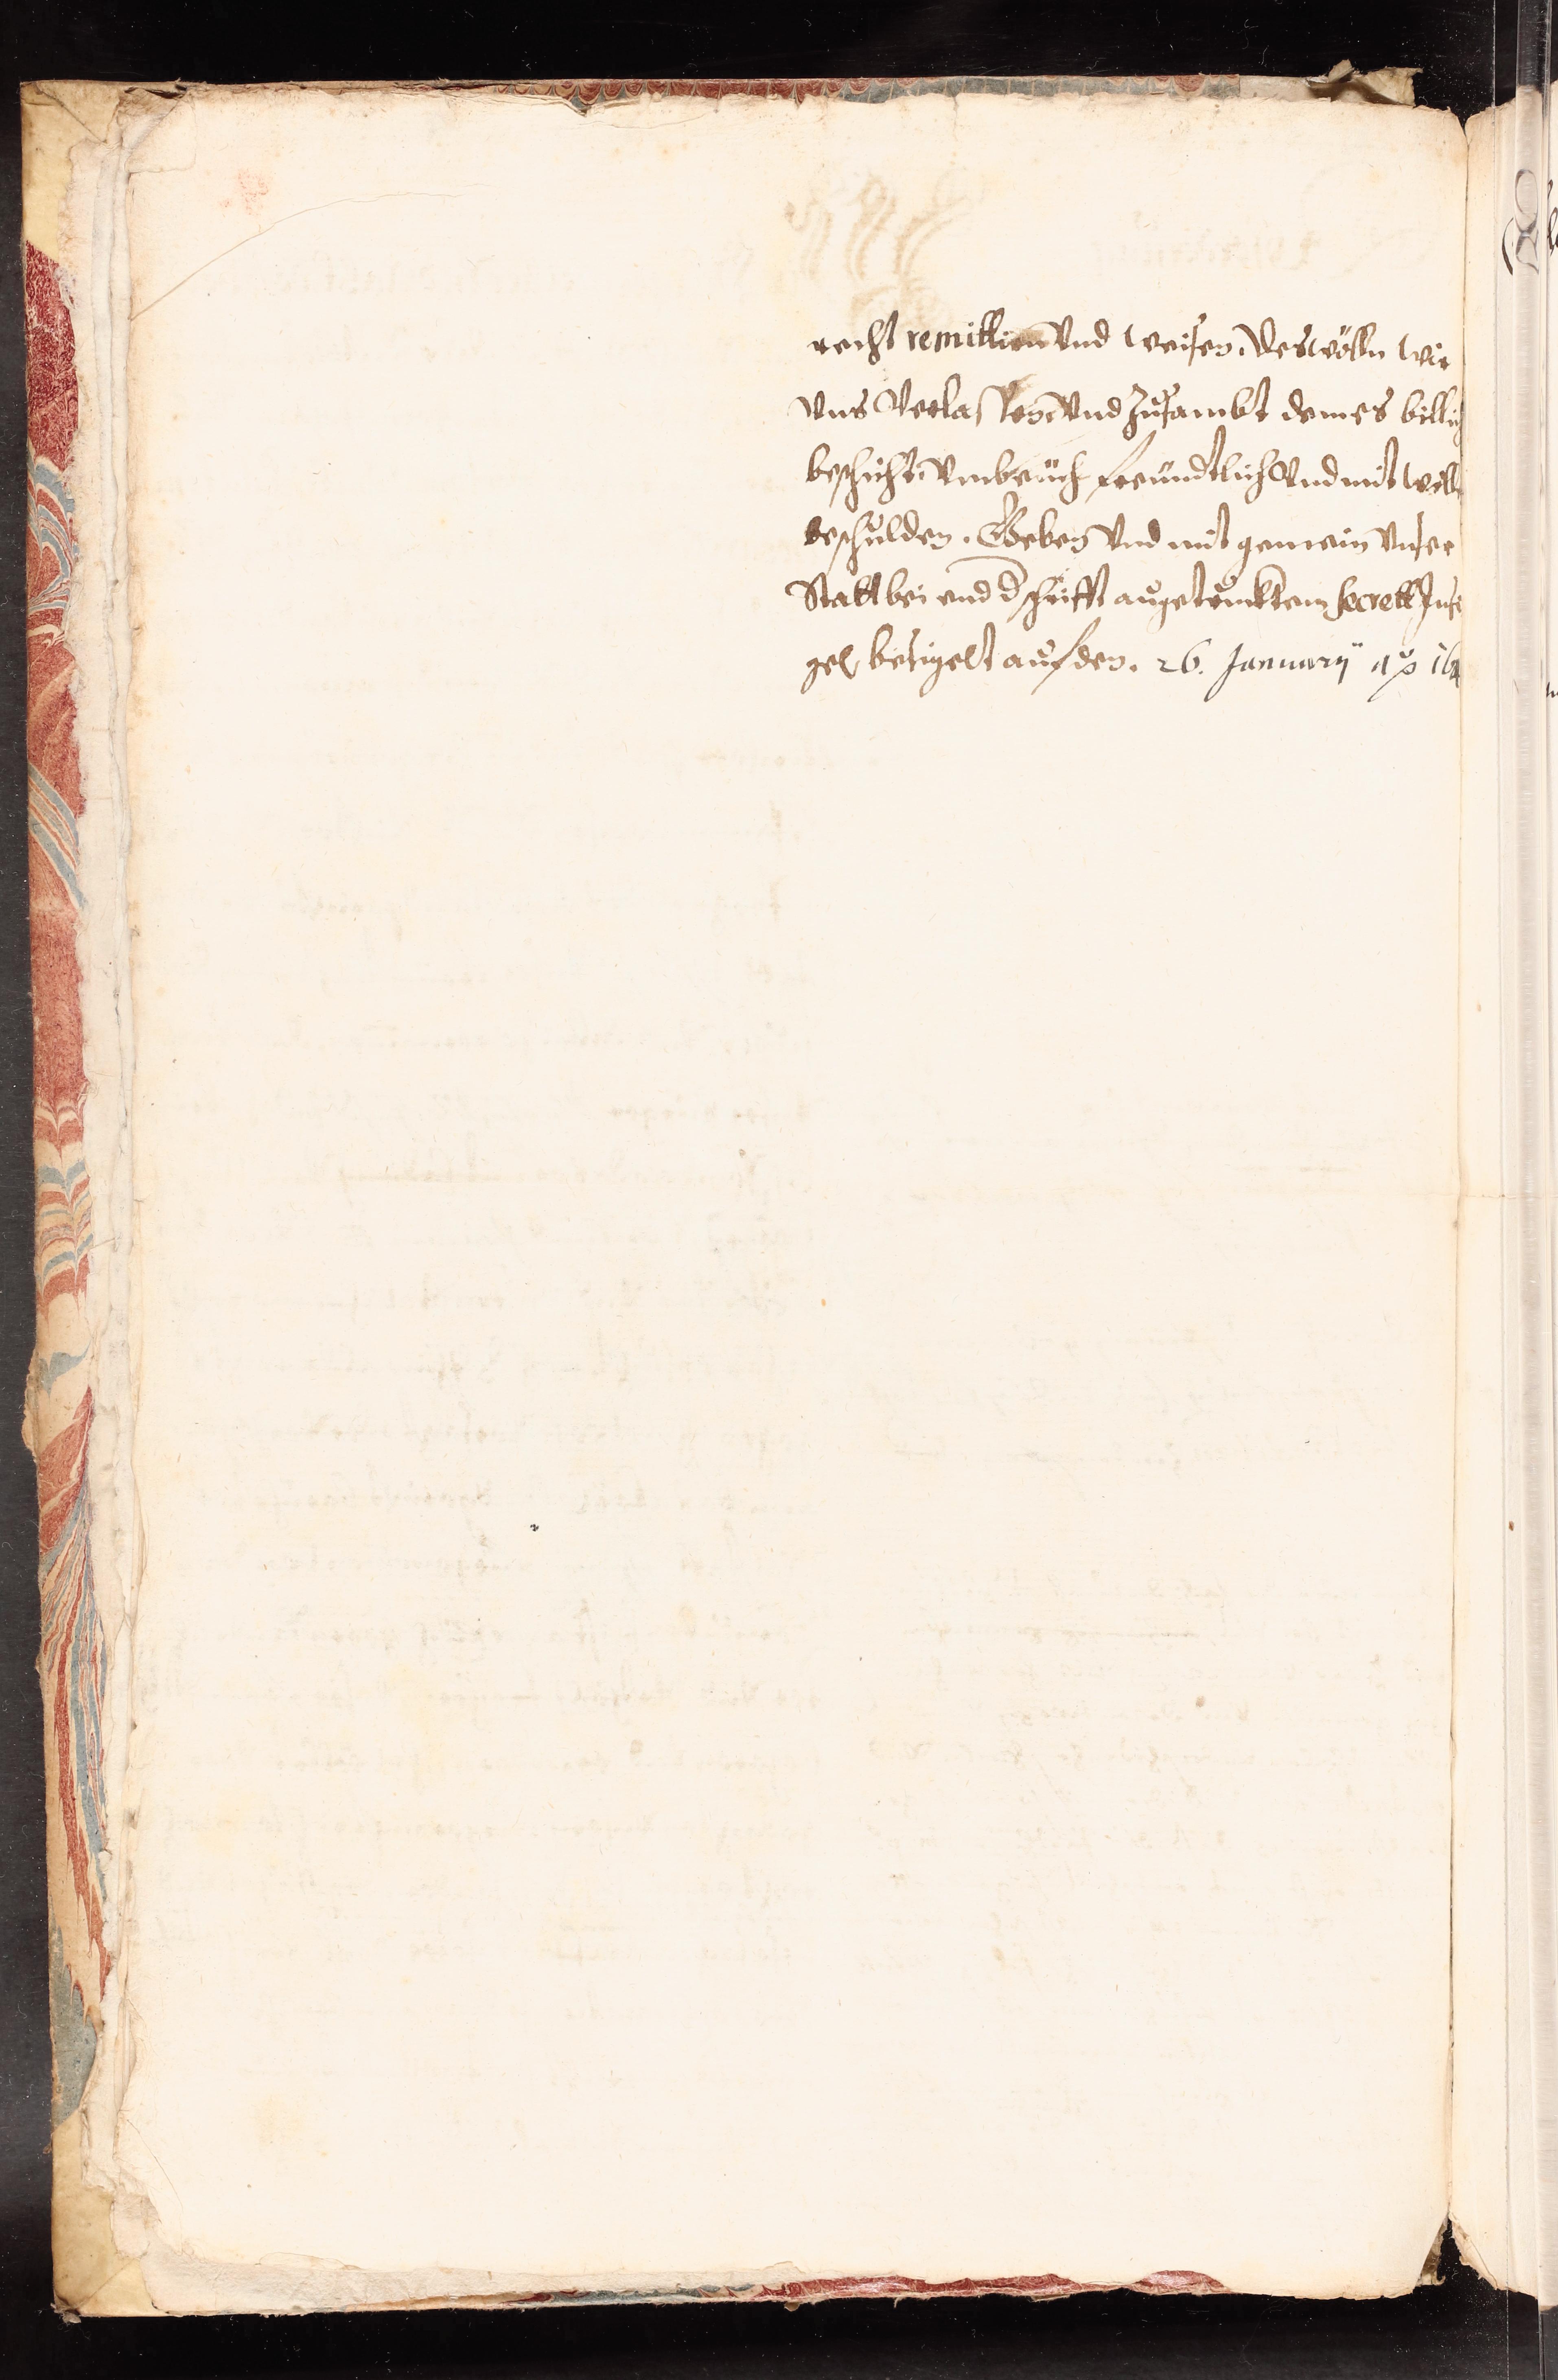 recht remittirn Vnd weisen. Des wölln wir
Vns Verlassen, Vnd Zusambt dem es billich
beschicht, Vmb euch freündtlich Vnd mit will
beschulden. Geben Vnd mit gemein Vnser
Statt bei end d schrifft aufgetrucktem Secrett Insi
gel besigelt auf den. 26. Januarÿ ao 16